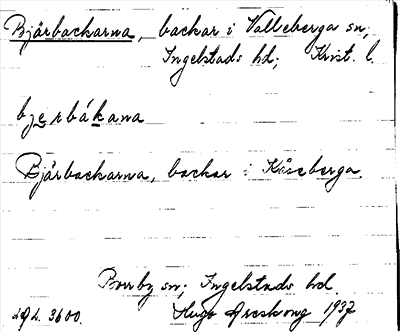 Bjärbackarna, backar i Valleberga sn;
Ingelstads hd; Krist. l.
bjerbákana
Bjärbackarna, backar i Kåseberga.
Borrby sn; Ingelstads hd.
3600. Hugo Areskoug 1937